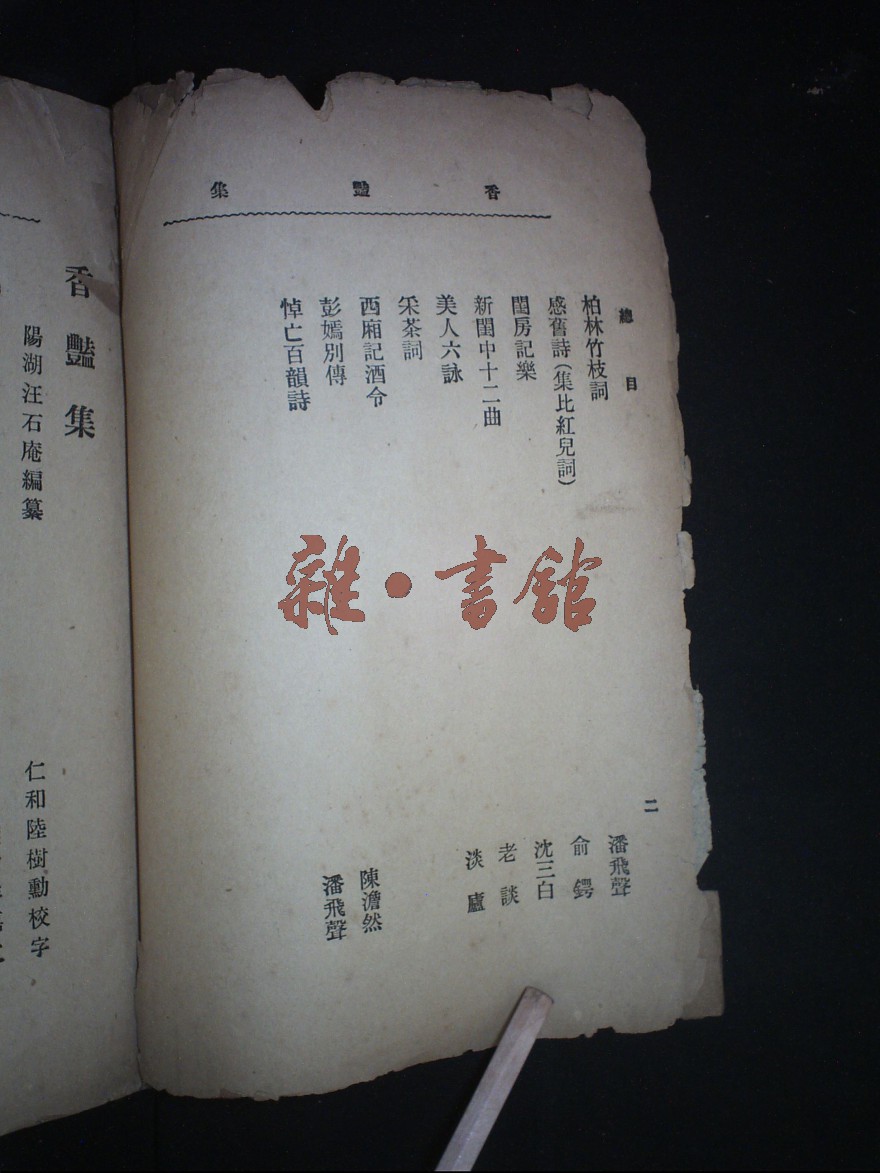 香豔集
總目
二
柏林竹枝詞 潘飛聲
感舊詩(集比紅兒詞) 俞鍔
閨房記樂 沈三白
新閨中十二曲 老談
美人六詠 淡廬
采茶詞
西廂記酒令
彭嫣別傳 陳澹然
悼亡百韻詩 潘飛聲
雜·書館
香豔集
陽湖汪石庵編纂
仁和陸樹勳校字